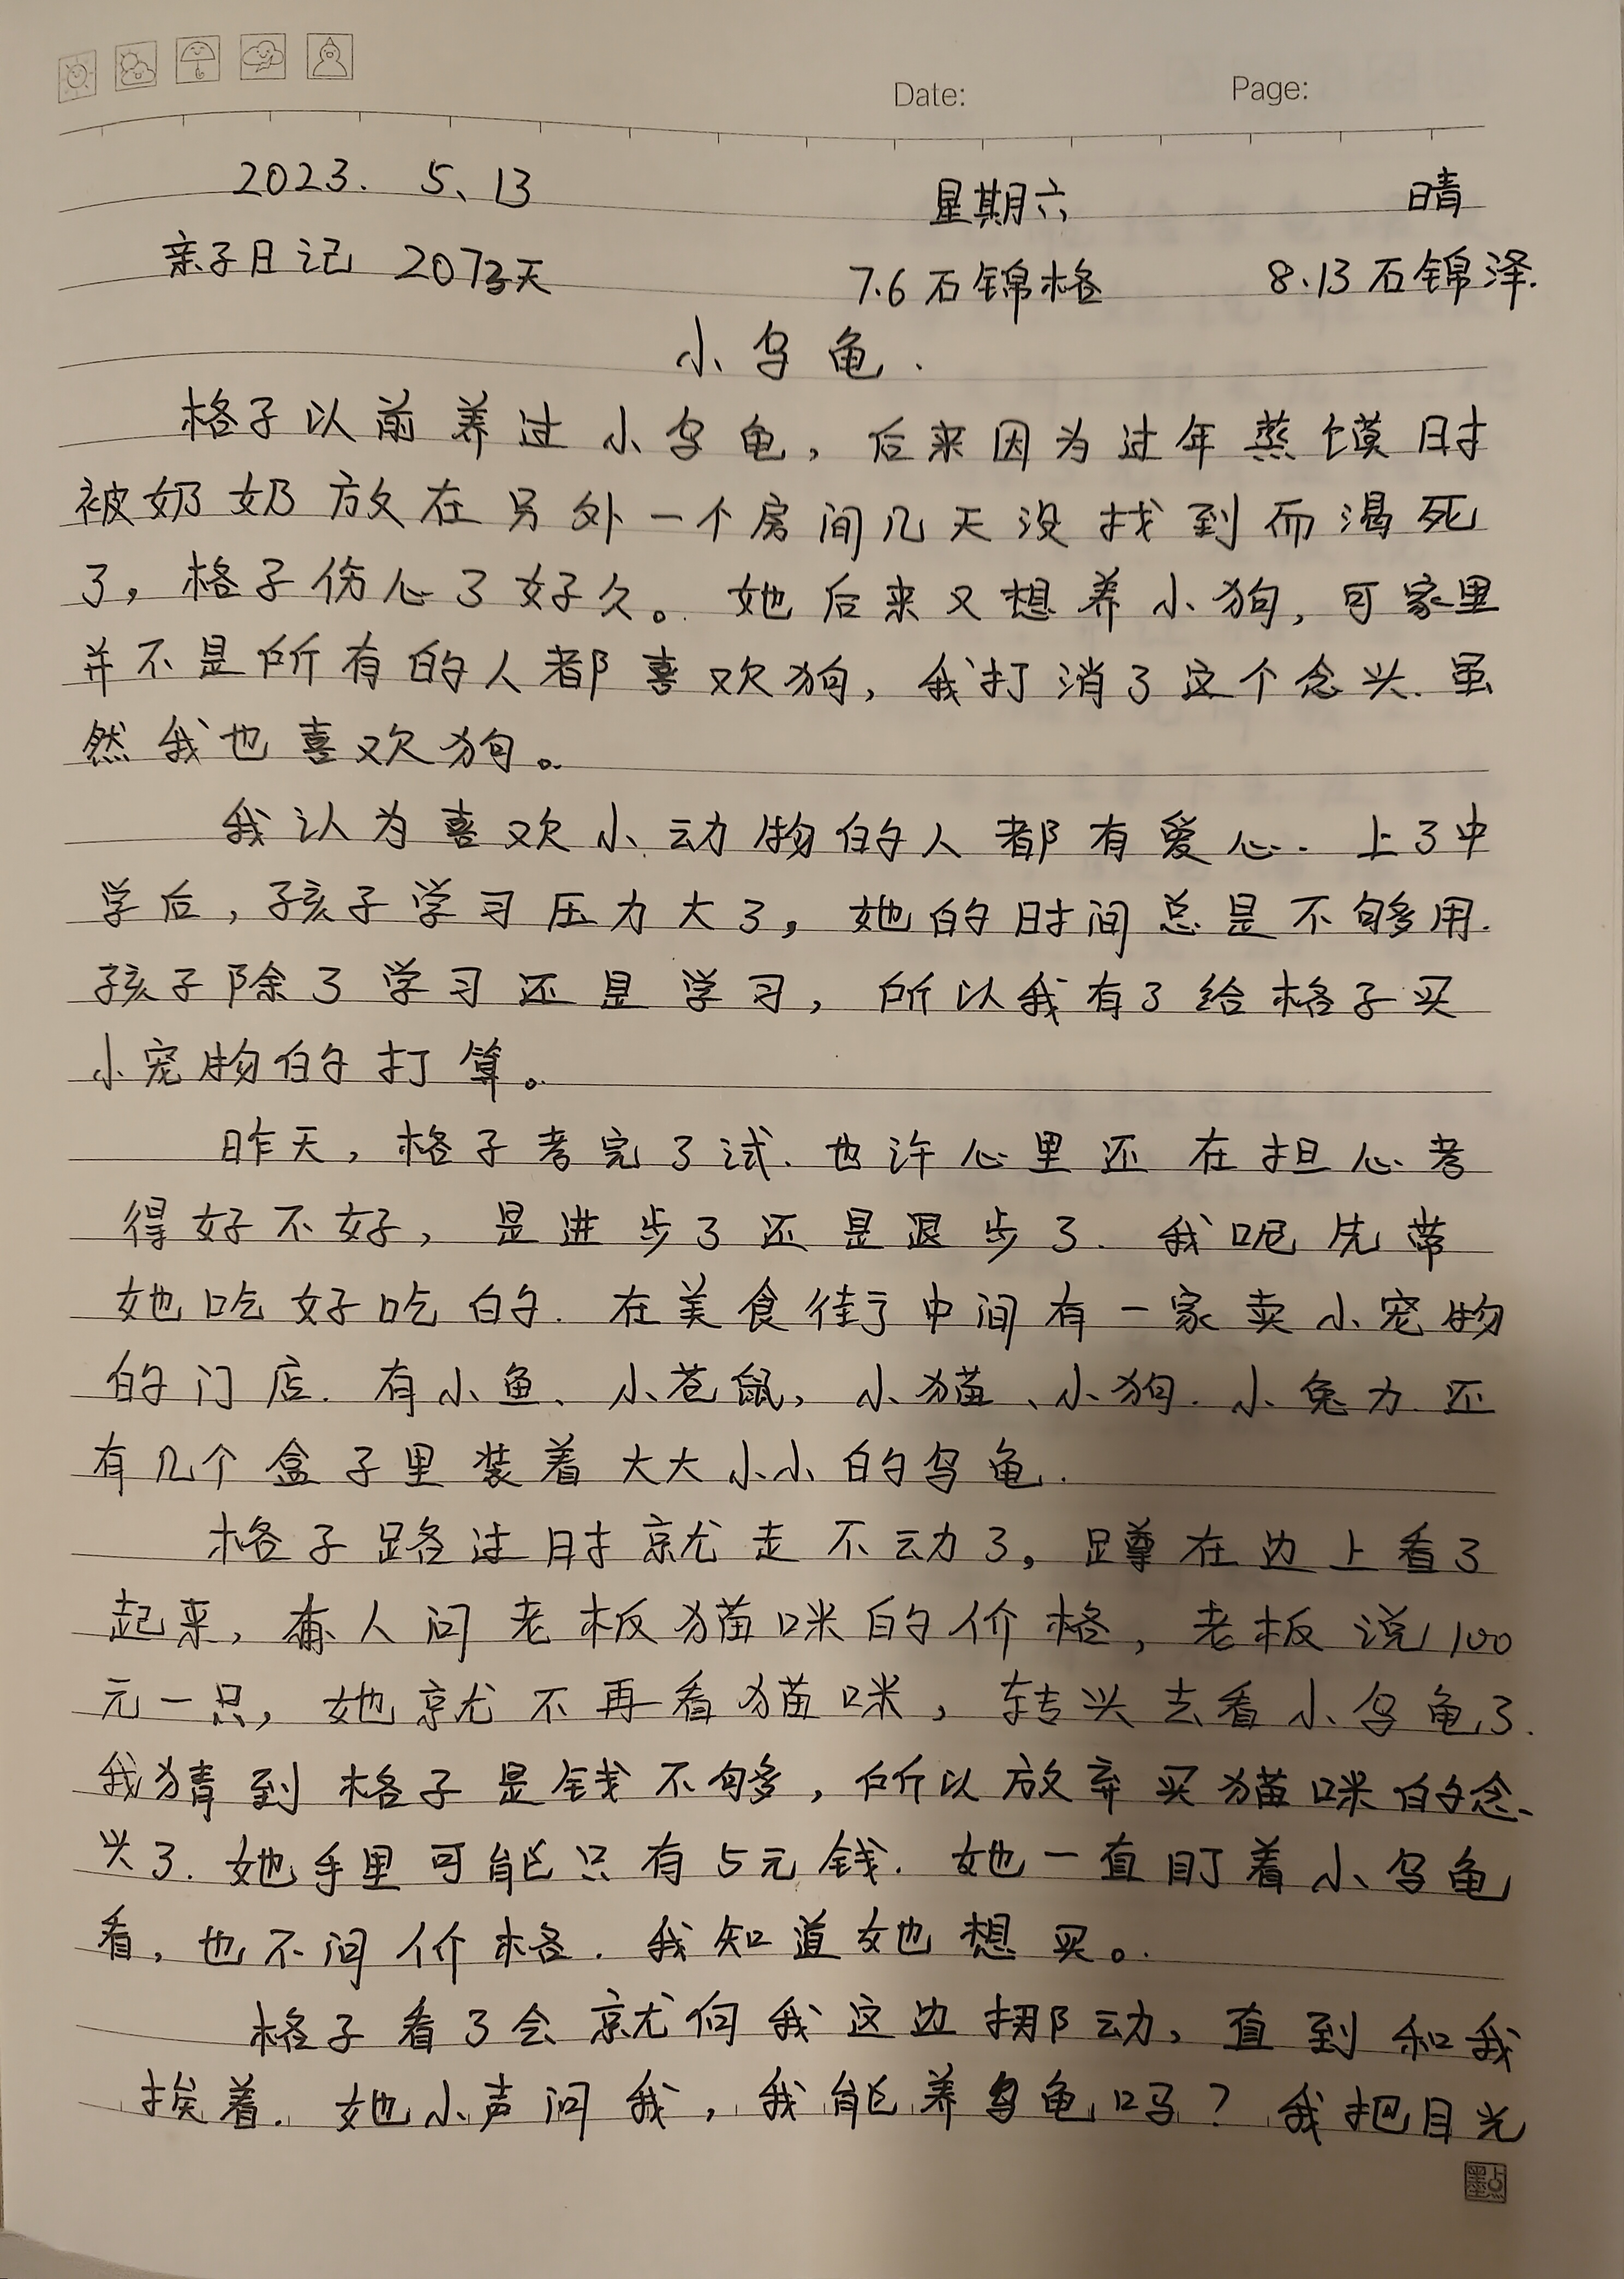 Date: Page:
2023. 5、13 星期六 晴
亲子日记 2073天 7.6石锦格 8.13石锦泽.
小乌龟.
格子以前养过小乌龟，后来因为过年蒸馍时
被奶奶放在另外一个房间几天没找到而渴死
了，格子伤心了好久。她后来又想养小狗，可家里
并不是所有的人都喜欢狗，我打消了这个念头.虽
然我也喜欢狗。
我认为喜欢小动物的人都有爱心.上了中
学后，孩子学习压力大了，她的时间总是不够用.
孩子除了学习还是学习，所以我有了给格子买
小宠物的打算。
昨天，格子考完了试.也许心里还在担心考
得好不好，是进步了还是退步了.我呢先带
她吃好吃的.在美食街中间有一家卖小宠物
的门店.有小鱼、小苍鼠，小猫、小狗.小兔力.还
有几个盒子里装着大大小小的乌龟.
格子路过时就走不动了，蹲在边上看了
起来，有人问老板猫咪的价格，老板说100
元一只，她就不再看猫咪，转头去看小乌龟了.
我猜到格子是钱不够，所以放弃买猫咪的念
头了.她手里可能只有5元钱.她一直盯着小乌龟
看，也不问价格.我知道她想买。
格子看了会就向我这边挪动，直到和我
挨着.她小声问我，我能养乌龟吗？我把目光
墨点